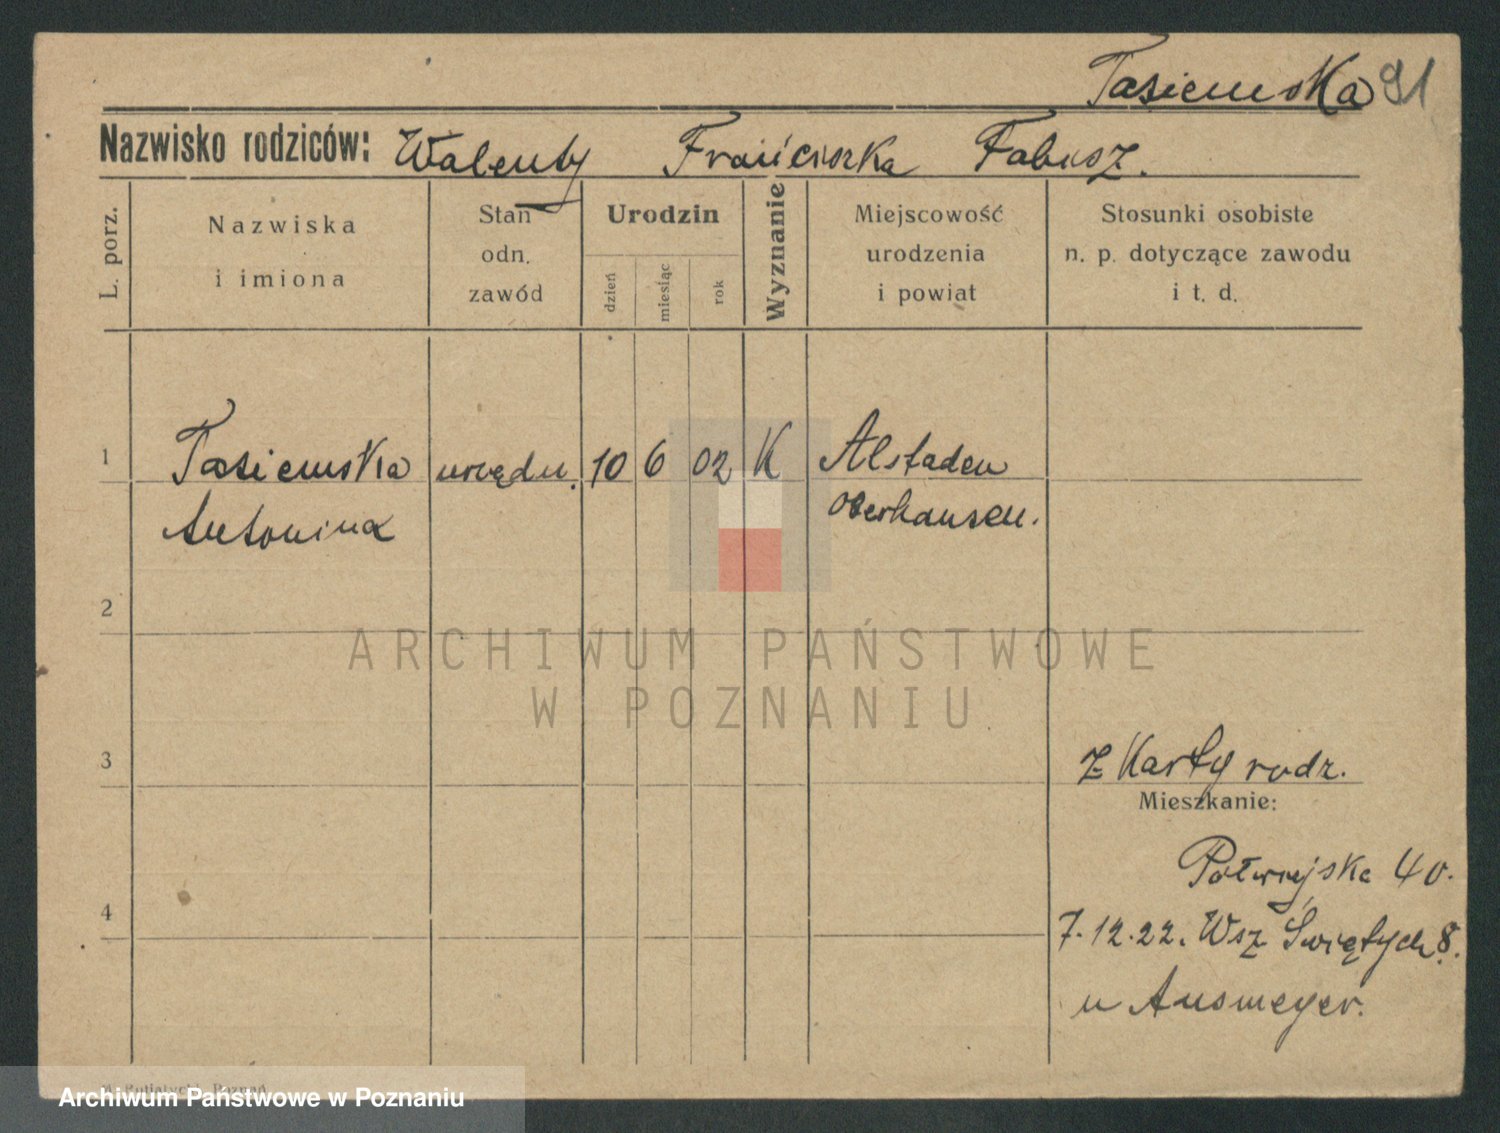 Tasiemska 91
Nazwisko rodziców: Walenty Franciszka Fabusz.
L. porz.
Nazwiska i imiona
Stan odn. zawód
Urodzin
dzień
miesiąc
rok
Wyznanie
Miejscowość urodzenia i powiat
Stosunki osobiste n. p. dotyczące zawodu i t. d.
1 Tasiemska urzędn. 10 6 02 K Alstaden
Antonina Oberhausen.
2
ARCHIWUM PAŃSTWOWE
W POZNANIU
3 z Karty rodz.
Mieszkanie:
Półwiejska 40.
4 7.12.22. Wsz Świętych 8.
u Ausmeyer.
Poznań
Archiwum Państwowe w Poznaniu